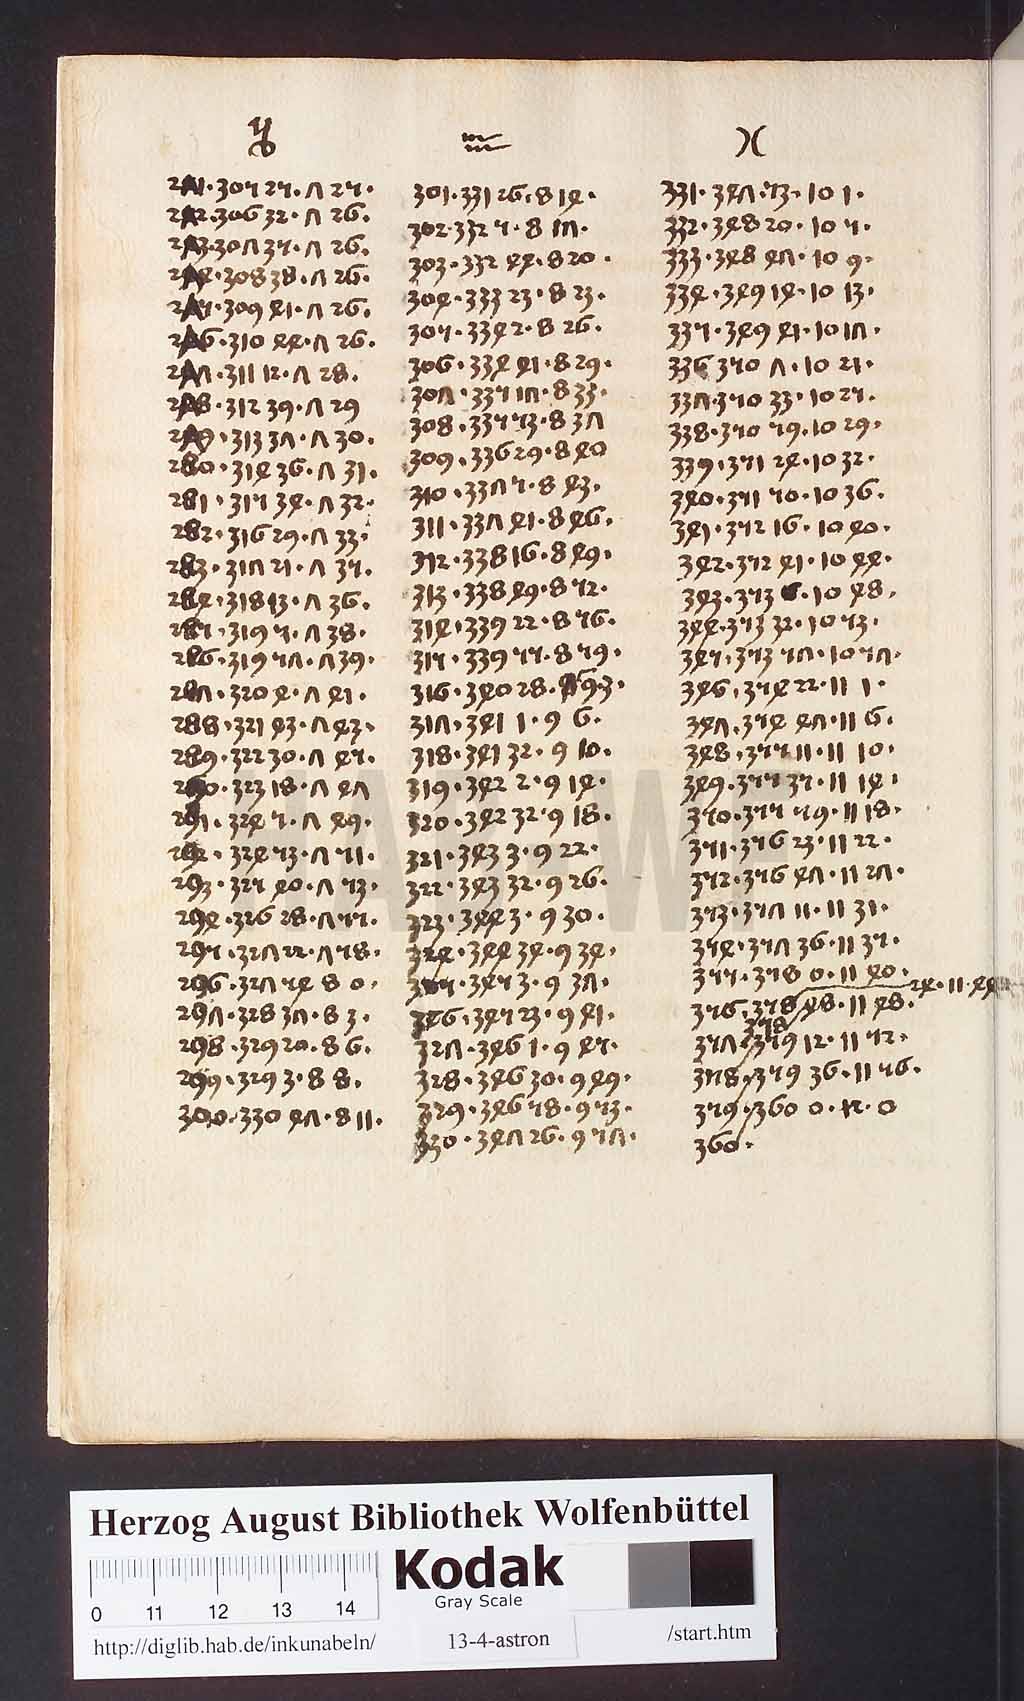 ♑
271·305 25·7 25·
272·306 32·7 26·
273·307 35·7 26·
274·308 38·7 26·
275·309 41·7 26·
276·310 44·7 26·
277·311 12·7 28·
278·312 39·7 29
279·313 37·7 30·
280·314 36·7 31·
281·315 34·7 32·
282·316 29·7 33·
283·317 21·7 35·
284·318 13·7 36·
285·319 5·7 38·
286·319 57·7 39·
287·320 4·7 41·
288·321 43·7 43·
289·322 30·7 45·
290·323 18·7 47
291·324 5·7 49·
292·324 53·7 51·
293·325 40·7 53·
294·326 28·7 55·
295·327 22·7 58·
296·327 54 8 0·
297·328 37·8 3·
298·329 20·8 6·
299·329 3·8 8·
300·330 47·8 11·
♒
301·331 26·8 14·
302·332 5·8 17·
303·332 44·8 20·
304·333 23·8 23·
305·334 2·8 26·
306·334 41·8 29·
307·335 17·8 33·
308·335 53·8 37
309·336 29·8 40
310·337 5·8 43·
311·337 41·8 46·
312·338 16·8 49·
313·338 49·8 52·
314·339 22·8 56·
315·339 55·8 59·
316·340 28· 9·3·
317·341 1·9 6·
318·341 32·9 10·
319·342 2·9 14·
320·342 32·9 18·
321·343 3·9 22·
322·343 32·9 26·
323·344 3·9 30·
324·344 34·9 34·
325·345 3·9 37·
326·345 23·9 41·
327·346 1·9 45·
328·346 30·9 49·
329·346 58·9 53·
330·347 26·9 57·
♓
331·347·53·10 1·
332·348 20·10 5·
333·348 47·10 9·
334·349 14·10 13·
335·349 41·10 17·
336 350 7·10 21·
337·350 33·10 25·
338·350 59·10 29·
339·351 24·10 32·
340·351 50·10 36·
341·352 16·10 40·
342·352 41·10 44·
343·353 6·10 48·
344·353 32·10 53·
345·353 57·10 57·
346·354 22·11 1·
347·354 47·11 6·
348·355 11·11 10·
349·355 35·11 14·
350·355 59·11 18·
351·356 23·11 22·
352·356 47·11 27·
353·357 11·11 31·
354·357 36·11 35·
355·358 0·11 40·
24·11·44
356·358 48·11 48·
358
357·359 12·11 52·
358·359 36·11 56·
359·360 0·12·0
360·
Herzog August Bibliothek Wolfenbüttel
Kodak
Gray Scale
0 11 12 13 14
http://diglib.hab.de/inkunabeln/
13-4-astron
/start.htm